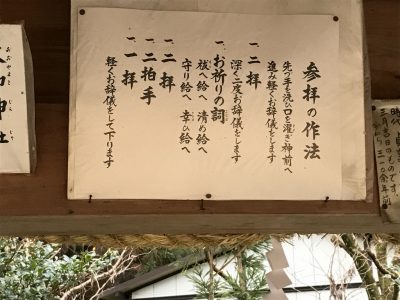 参拝の作法
先づ手を洗ひ口を濯ぎ神前へ
進み軽くお辞儀をします
一、二拝
深く二度お辞儀をします
一、お祈りの詞
祓へ給へ 清め給へ
守り給へ 幸ひ給へ
一、二拝
一、二拍手
一、一拝
軽くお辞儀をして下ります